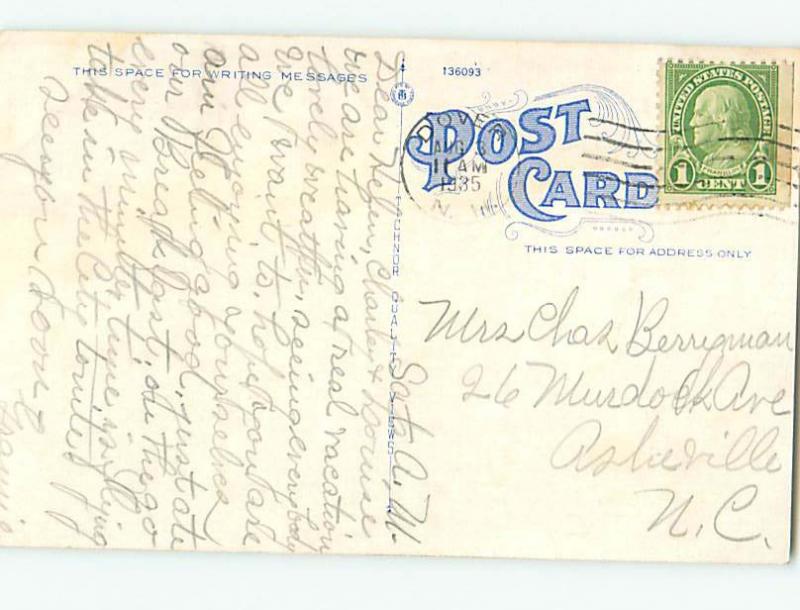 THIS SPACE FOR WRITING MESSAGES
136093
POST CARD
DOVER
AUG 3
11 AM
1935
N. H.
UNITED STATES POSTAGE
FRANKLIN
1 CENT 1
THIS SPACE FOR ADDRESS ONLY
TICHNOR QUALITY VIEWS
Mrs Chas Berrigman
26 Murdock Ave
Asheville
N.C.
Sat. A.M.
Dear Helen, Charley & Louise
We are having a real vacation
lovely weather, seeing everybody
we want to, hope you are
all enjoying yourselves
am feeling good, just ate
our Breakfast, on the go
every minute
talk in the City tonite
See you soon